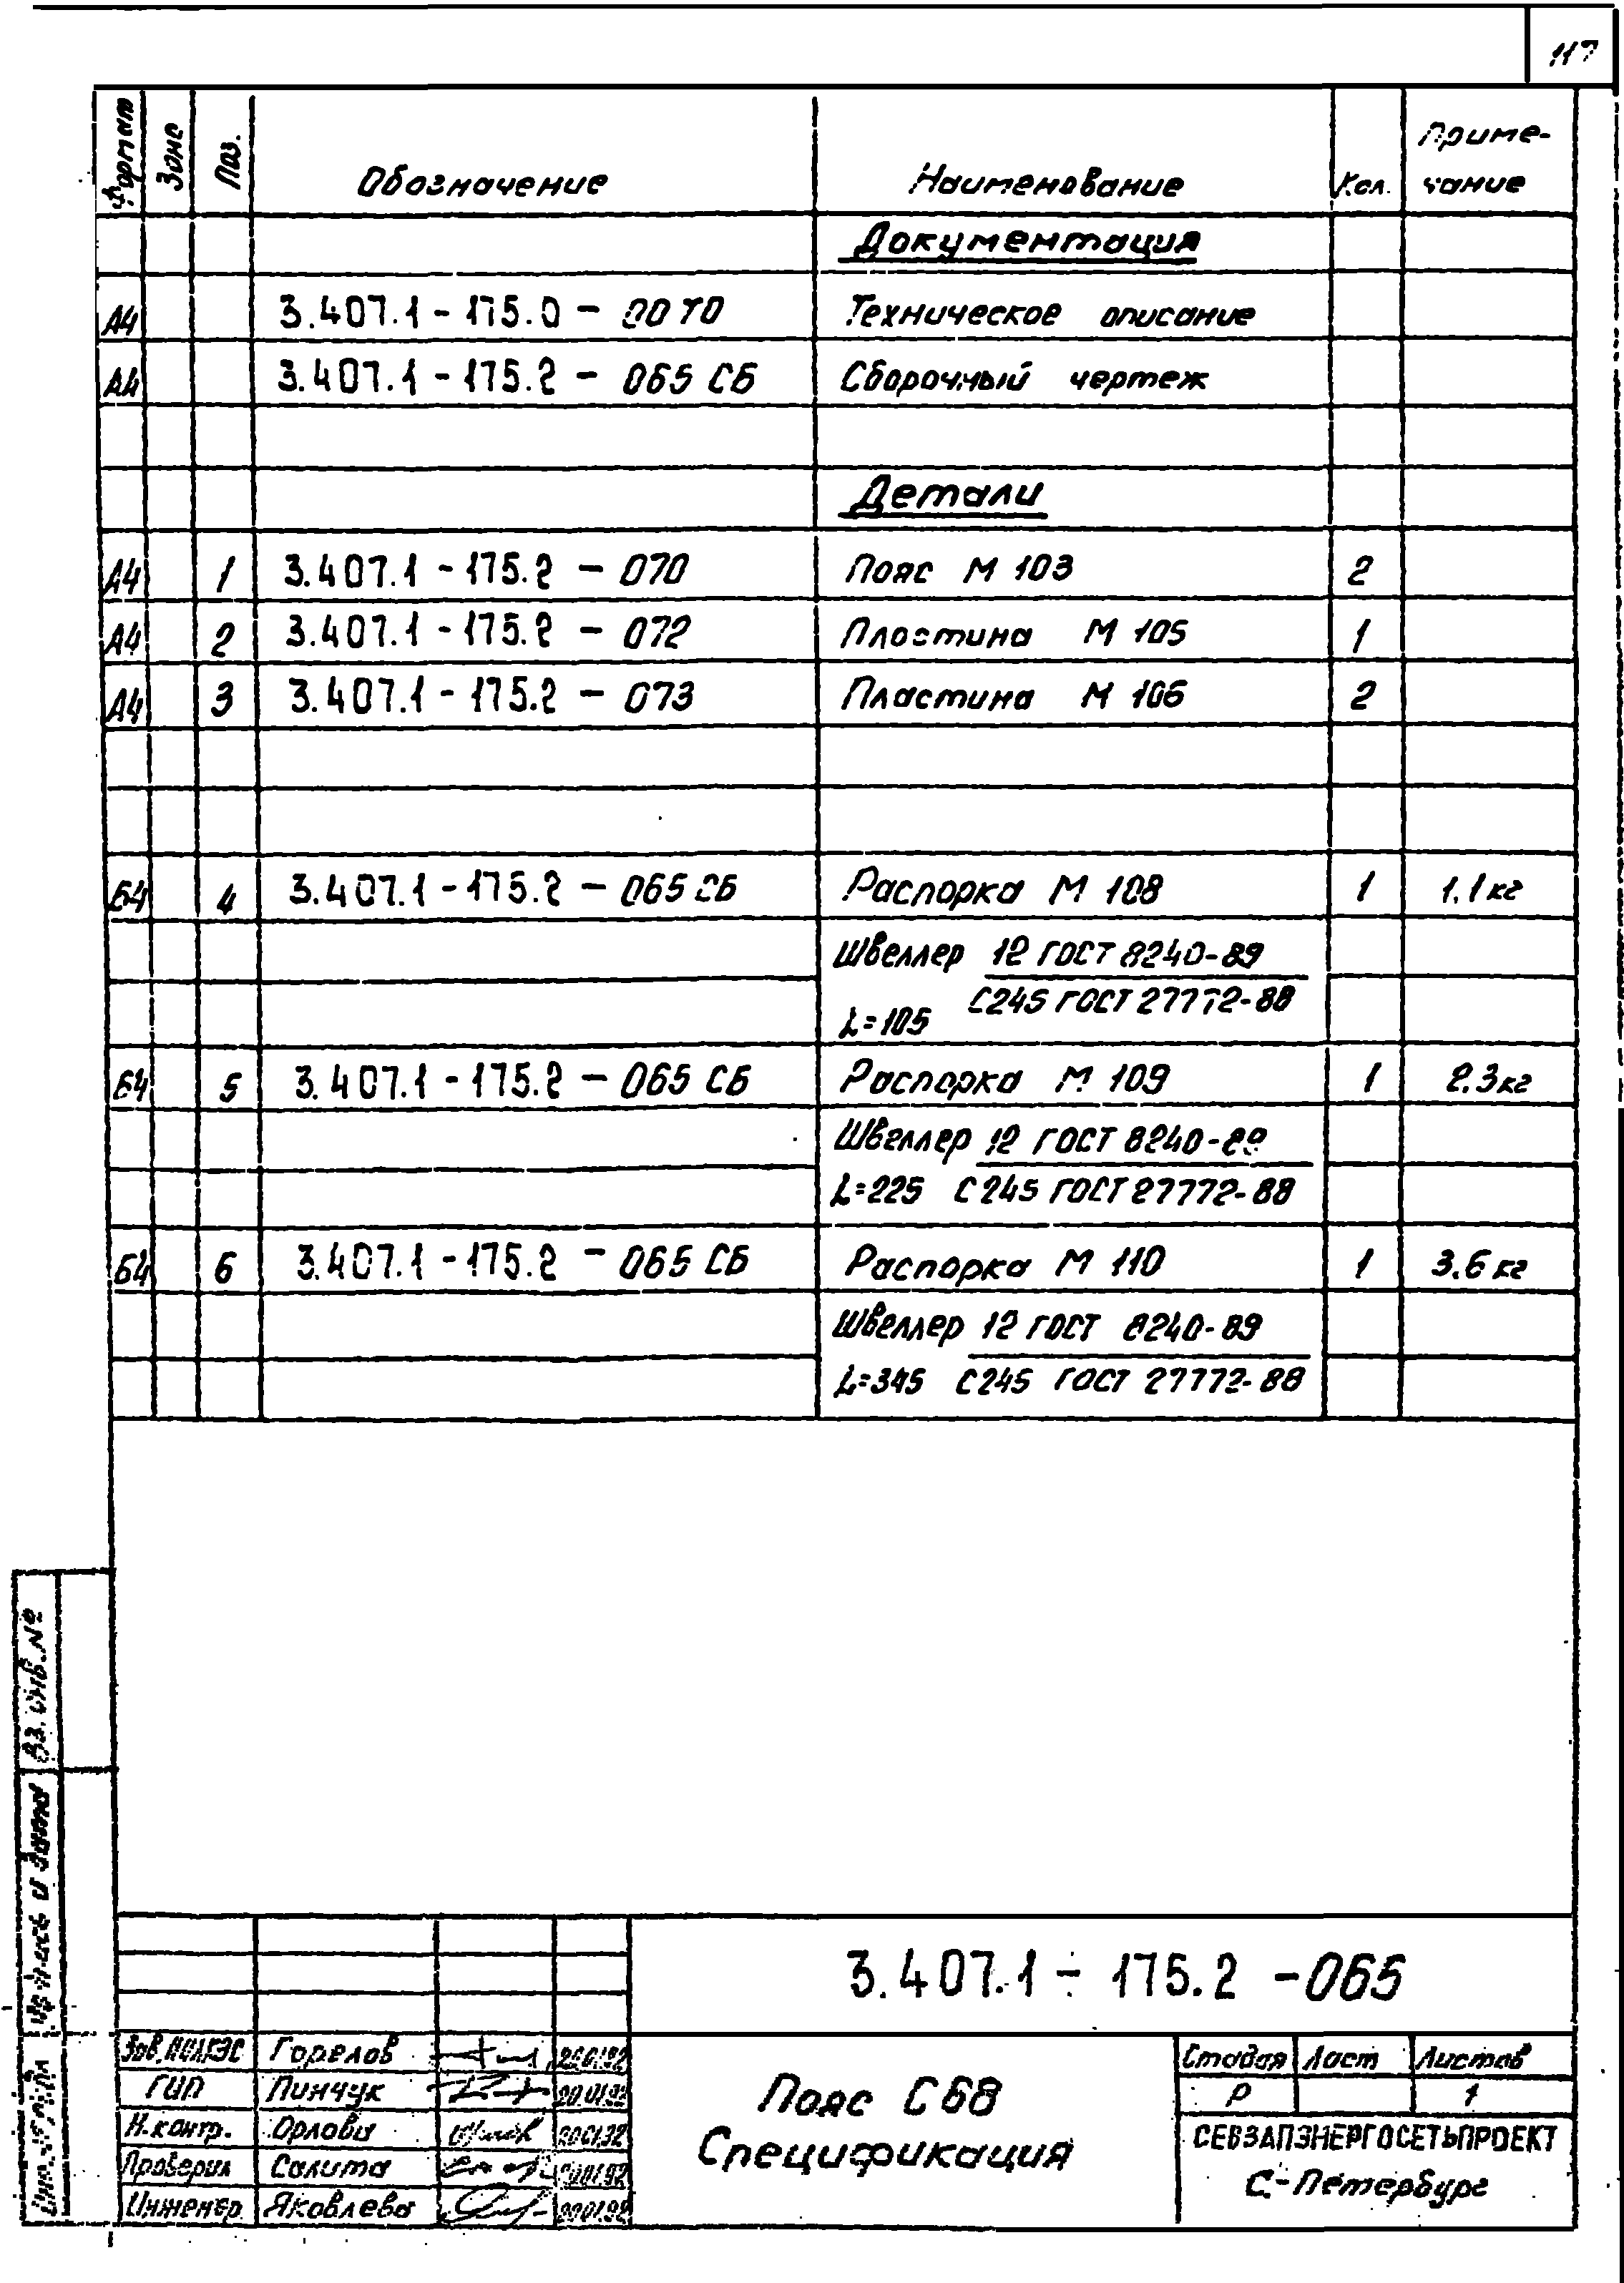 117
Формат Зона Поз. Обозначение Наименование Кол. Приме-
чание
Документация
А4 3.407.1-175.0-00 ТО Техническое описание
А4 3.407.1-175.2-065 СБ Сборочный чертеж
Детали
А4 1 3.407.1-175.2-070 Пояс М 103 2
А4 2 3.407.1-175.2-072 Пластина М 105 1
А4 3 3.407.1-175.2-073 Пластина М 106 2
Б4 4 3.407.1-175.2-065 СБ Распорка М 108 1 1.1кг
Швеллер 12 ГОСТ 8240-89
С245 ГОСТ 27772-88
L=105
Б4 5 3.407.1-175.2-065 СБ Распорка М 109 1 2.3кг
Швеллер 12 ГОСТ 8240-89
L=225 С245 ГОСТ 27772-88
Б4 6 3.407.1-175.2-065 СБ Распорка М 110 1 3.6кг
Швеллер 12 ГОСТ 8240-89
L=345 С245 ГОСТ 27772-88
Вз. инв. №
и дата
3.407.1-175.2-065
Зав. Горелов
ГИП Пинчук 20.01.92
Н.контр. Орлова
Проверил Салита
Инженер Яковлева 20.01.92
Пояс С68
Спецификация
Стадия Лист Листов
Р 1
СЕВЗАПЭНЕРГОСЕТЬПРОЕКТ
С.-Петербург